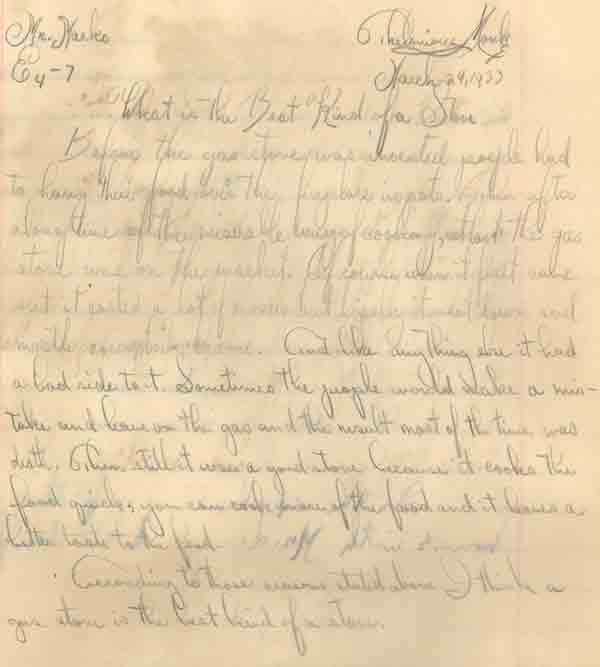 Mr. Marko Thelonious Monk
E4-7 March 29, 1933
What is the Best Kind of a Stove
Before the gas stove was invented people had
to hang their food over the fireplace in pots. Then after
a long time of the miserable way of cooking, at last the gas
stove was on the market. Of course when it first came
out it costed a lot of money but it went down and
And like anything else it had
a bad side to it. Sometimes the people would make a mis-
take and leave on the gas and the result most of the time was
deth. Then still it was a good stove because it cooks the
food quick, you can cook more of the food and it leaves a
better taste to the food.
According to those reasons stated above I think a
gas stove is the best kind of a stove.